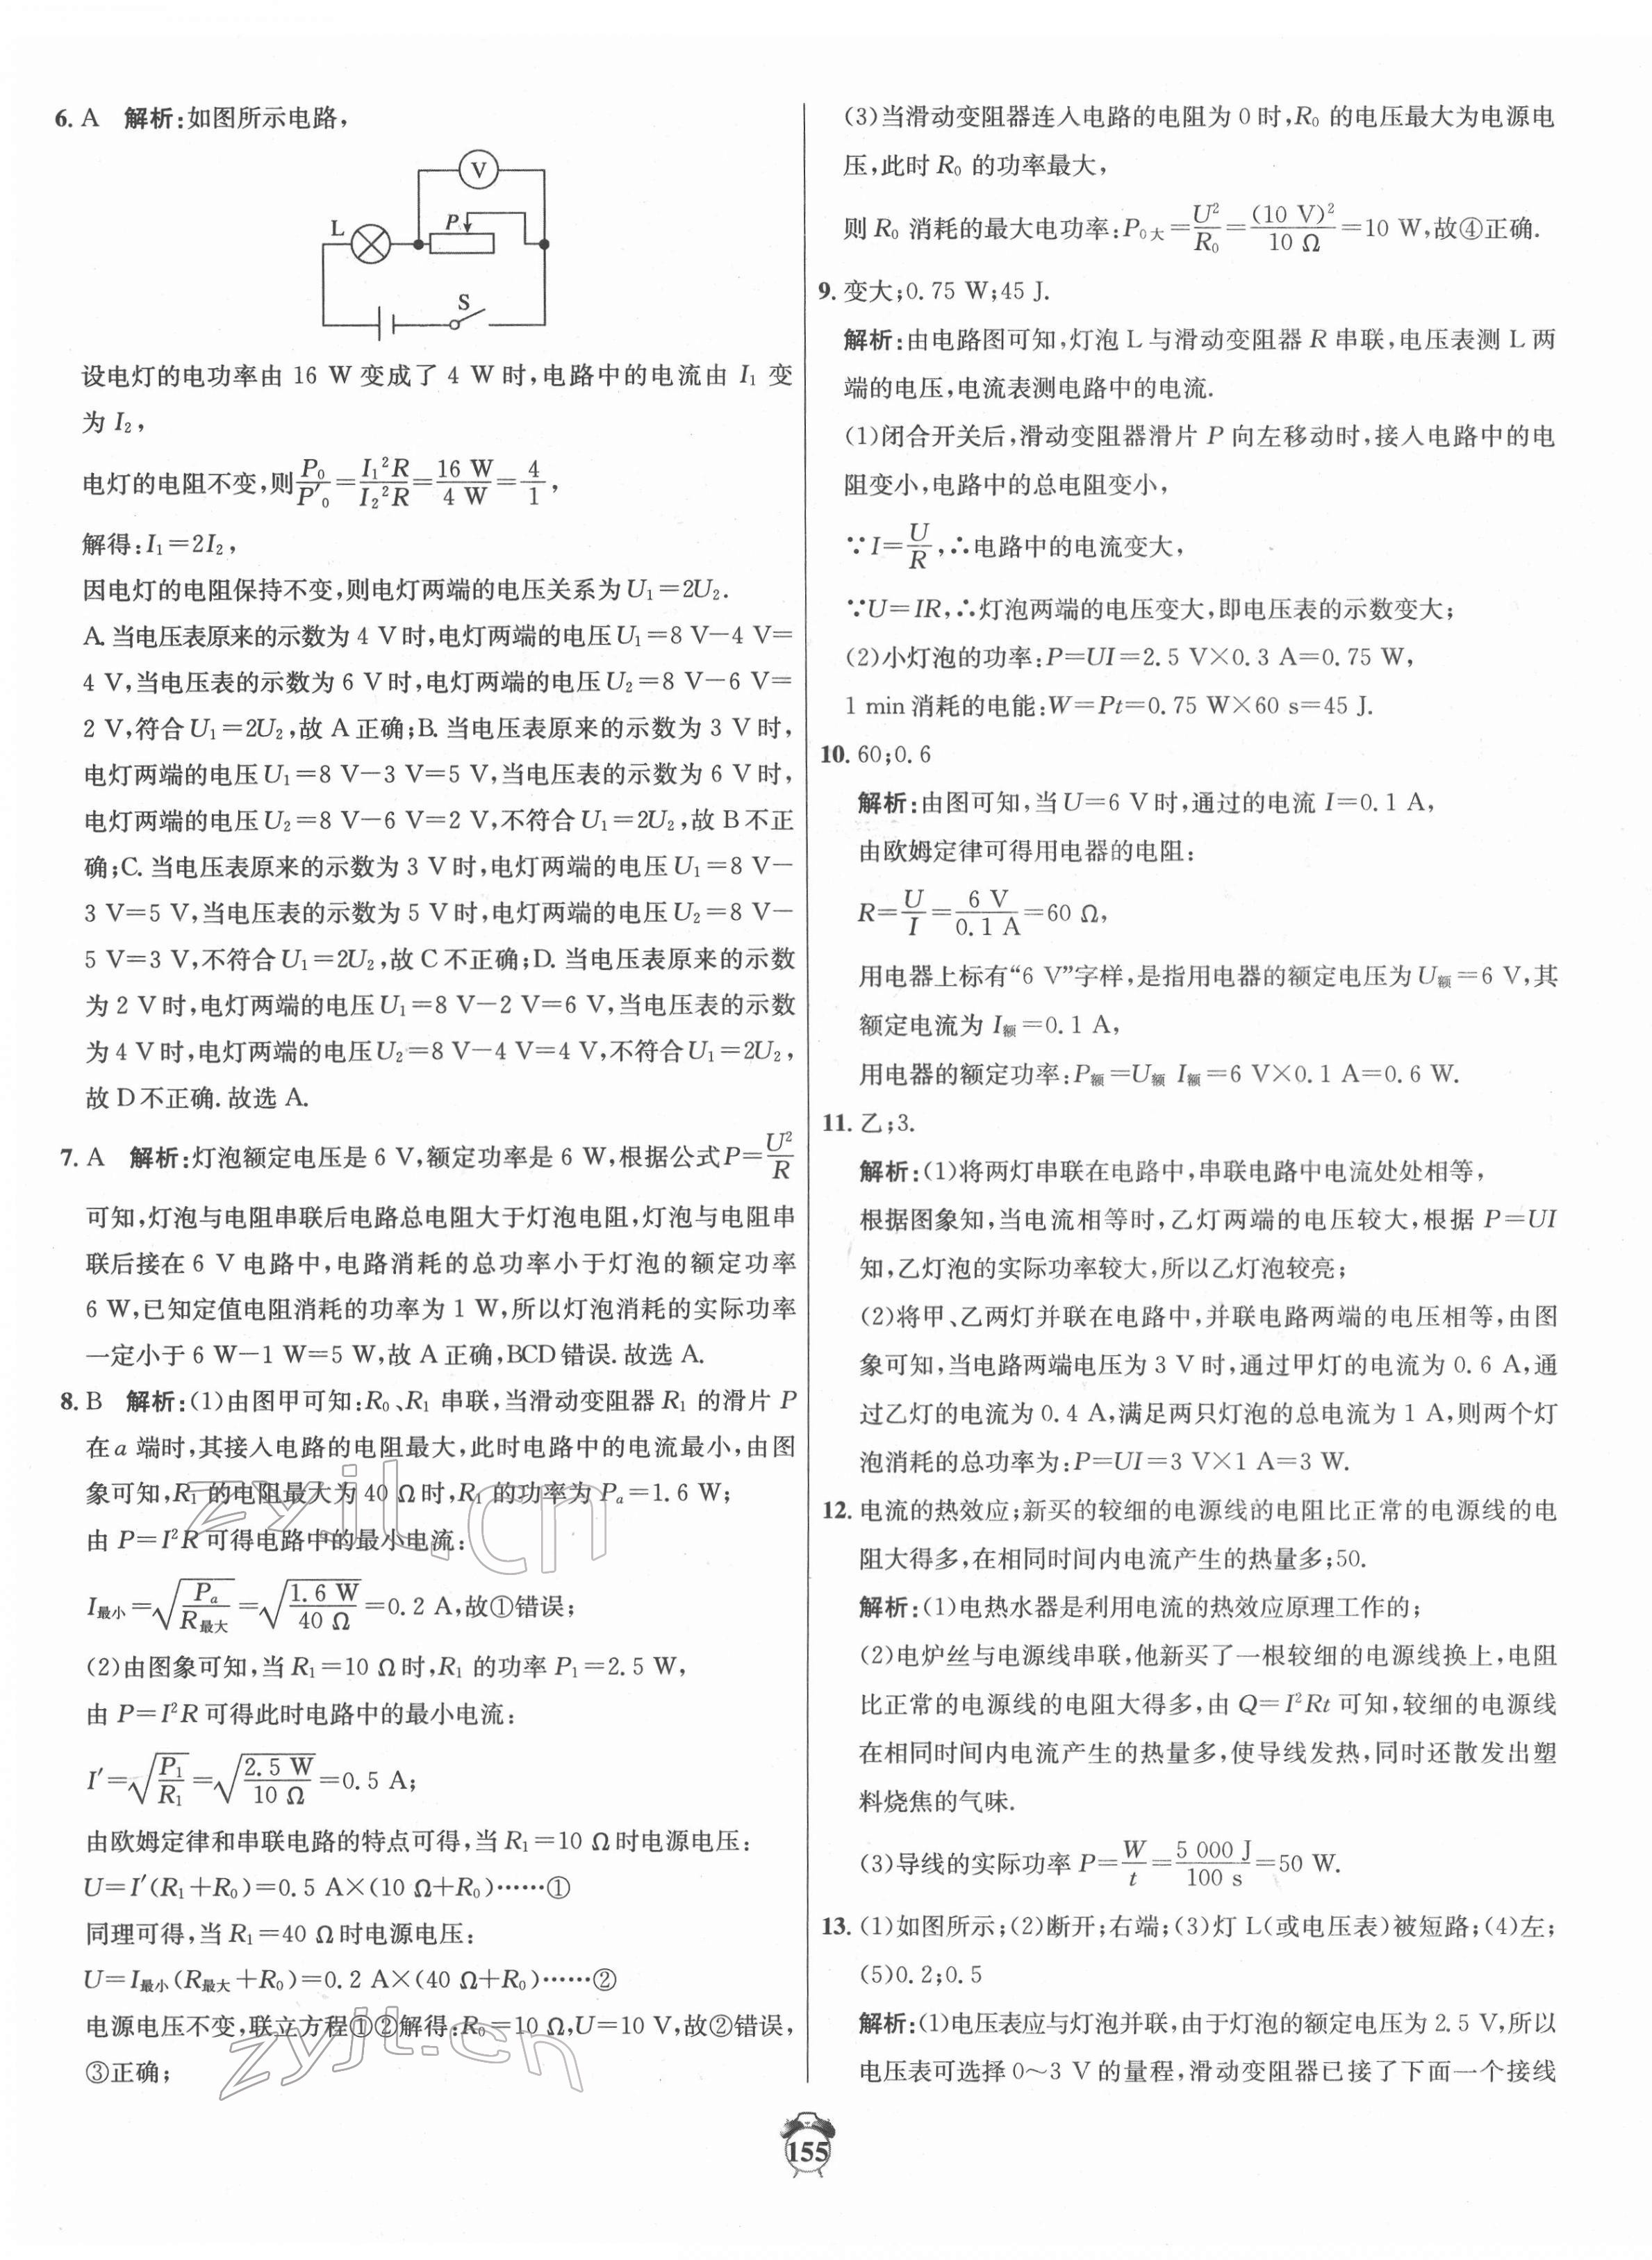 6. A 解析:如图所示电路,
V
L
P
S
设电灯的电功率由 16 W 变成了 4 W 时,电路中的电流由 I₁ 变
为 I₂,
电灯的电阻不变,则P₀/P′₀=I₁²R/I₂²R=16 W/4 W=4/1,
解得:I₁=2I₂,
因电灯的电阻保持不变,则电灯两端的电压关系为 U₁=2U₂.
A. 当电压表原来的示数为 4 V 时,电灯两端的电压 U₁=8 V-4 V=
4 V,当电压表的示数为 6 V 时,电灯两端的电压 U₂=8 V-6 V=
2 V,符合 U₁=2U₂,故 A 正确;B. 当电压表原来的示数为 3 V 时,
电灯两端的电压 U₁=8 V-3 V=5 V,当电压表的示数为 6 V 时,
电灯两端的电压 U₂=8 V-6 V=2 V,不符合 U₁=2U₂,故 B 不正
确;C. 当电压表原来的示数为 3 V 时,电灯两端的电压 U₁=8 V-
3 V=5 V,当电压表的示数为 5 V 时,电灯两端的电压 U₂=8 V-
5 V=3 V,不符合 U₁=2U₂,故 C 不正确;D. 当电压表原来的示数
为 2 V 时,电灯两端的电压 U₁=8 V-2 V=6 V,当电压表的示数
为 4 V 时,电灯两端的电压 U₂=8 V-4 V=4 V,不符合 U₁=2U₂,
故 D 不正确. 故选 A.
7. A 解析:灯泡额定电压是 6 V,额定功率是 6 W,根据公式 P=U²/R
可知,灯泡与电阻串联后电路总电阻大于灯泡电阻,灯泡与电阻串
联后接在 6 V 电路中,电路消耗的总功率小于灯泡的额定功率
6 W,已知定值电阻消耗的功率为 1 W,所以灯泡消耗的实际功率
一定小于 6 W-1 W=5 W,故 A 正确,BCD 错误. 故选 A.
8. B 解析:(1)由图甲可知:R₀、R₁ 串联,当滑动变阻器 R₁ 的滑片 P
在 a 端时,其接入电路的电阻最大,此时电路中的电流最小,由图
象可知,R₁ 的电阻最大为 40 Ω 时,R₁ 的功率为 Pₐ=1.6 W;
由 P=I²R 可得电路中的最小电流:
I最小=√(Pₐ/R最大)=√(1.6 W/40 Ω)=0.2 A,故①错误;
(2)由图象可知,当 R₁=10 Ω 时,R₁ 的功率 P₁=2.5 W,
由 P=I²R 可得此时电路中的最小电流:
I′=√(P₁/R₁)=√(2.5 W/10 Ω)=0.5 A;
由欧姆定律和串联电路的特点可得,当 R₁=10 Ω 时电源电压:
U=I′(R₁+R₀)=0.5 A×(10 Ω+R₀)……①
同理可得,当 R₁=40 Ω 时电源电压:
U=I最小(R最大+R₀)=0.2 A×(40 Ω+R₀)……②
电源电压不变,联立方程①②解得:R₀=10 Ω,U=10 V,故②错误,
③正确;
(3)当滑动变阻器连入电路的电阻为 0 时,R₀ 的电压最大为电源电
压,此时 R₀ 的功率最大,
则 R₀ 消耗的最大电功率:P₀大=U²/R₀=(10 V)²/10 Ω=10 W,故④正确.
9. 变大;0.75 W;45 J.
解析:由电路图可知,灯泡 L 与滑动变阻器 R 串联,电压表测 L 两
端的电压,电流表测电路中的电流.
(1)闭合开关后,滑动变阻器滑片 P 向左移动时,接入电路中的电
阻变小,电路中的总电阻变小,
∵I=U/R,∴电路中的电流变大,
∵U=IR,∴灯泡两端的电压变大,即电压表的示数变大;
(2)小灯泡的功率:P=UI=2.5 V×0.3 A=0.75 W,
1 min 消耗的电能:W=Pt=0.75 W×60 s=45 J.
10. 60;0.6
解析:由图可知,当 U=6 V 时,通过的电流 I=0.1 A,
由欧姆定律可得用电器的电阻:
R=U/I=6 V/0.1 A=60 Ω,
用电器上标有“6 V”字样,是指用电器的额定电压为 U额=6 V,其
额定电流为 I额=0.1 A,
用电器的额定功率:P额=U额 I额=6 V×0.1 A=0.6 W.
11. 乙;3.
解析:(1)将两灯串联在电路中,串联电路中电流处处相等,
根据图象知,当电流相等时,乙灯两端的电压较大,根据 P=UI
知,乙灯泡的实际功率较大,所以乙灯泡较亮;
(2)将甲、乙两灯并联在电路中,并联电路两端的电压相等,由图
象可知,当电路两端电压为 3 V 时,通过甲灯的电流为 0.6 A,通
过乙灯的电流为 0.4 A,满足两只灯泡的总电流为 1 A,则两个灯
泡消耗的总功率为:P=UI=3 V×1 A=3 W.
12. 电流的热效应;新买的较细的电源线的电阻比正常的电源线的电
阻大得多,在相同时间内电流产生的热量多;50.
解析:(1)电热水器是利用电流的热效应原理工作的;
(2)电炉丝与电源线串联,他新买了一根较细的电源线换上,电阻
比正常的电源线的电阻大得多,由 Q=I²Rt 可知,较细的电源线
在相同时间内电流产生的热量多,使导线发热,同时还散发出塑
料烧焦的气味.
(3)导线的实际功率 P=W/t=5 000 J/100 s=50 W.
13. (1)如图所示;(2)断开;右端;(3)灯 L(或电压表)被短路;(4)左;
(5)0.2;0.5
解析:(1)电压表应与灯泡并联,由于灯泡的额定电压为 2.5 V,所以
电压表可选择 0~3 V 的量程,滑动变阻器已接了下面一个接线
zyjl.cn
zyjl.cn
155